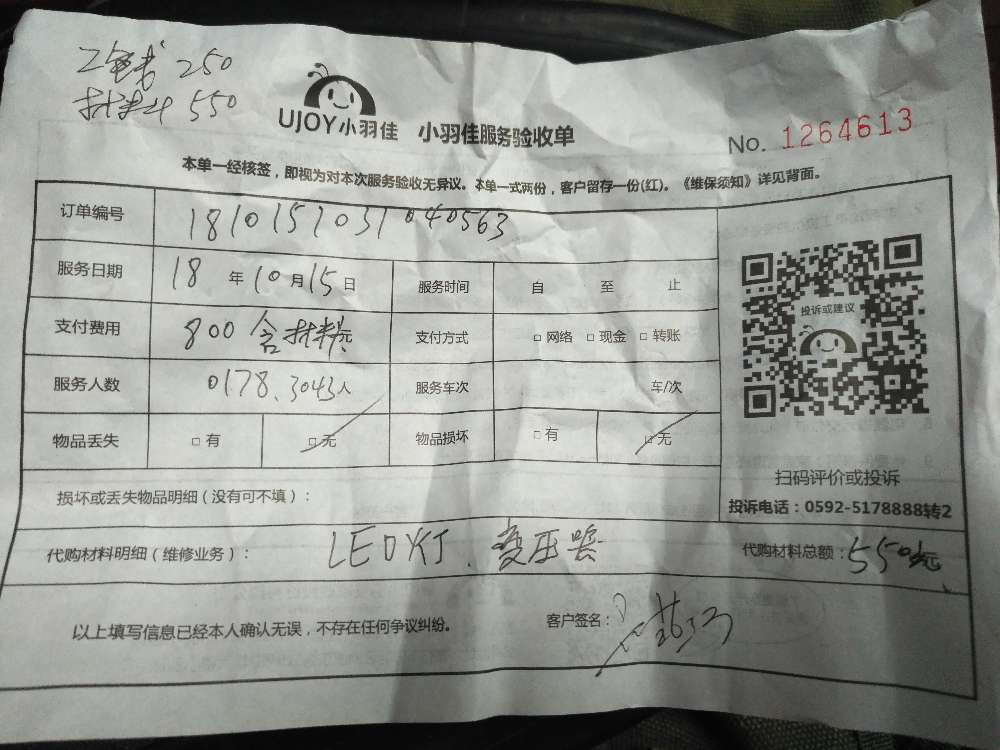 250
材料 550
UJOY小羽佳 小羽佳服务验收单
No. 1264613
本单一经核签，即视为对本次服务验收无异议。本单一式两份，客户留存一份(红)。《维保须知》详见背面。
订单编号 1810151031040563
服务日期 18 年 10 月 15 日 服务时间 自 至 止
支付费用 800 含材料 元 支付方式 □ 网络 □ 现金 □ 转账
服务人数 0178、3043 人 服务车次 车/次
物品丢失 □ 有 □ 无 物品损坏 □ 有 □ 无
投诉或建议
扫码评价或投诉
投诉电话：0592-5178888转2
损坏或丢失物品明细（没有可不填）：
代购材料明细（维修业务）： LED灯、变压器 代购材料总额： 550元
以上填写信息已经本人确认无误，不存在任何争议纠纷。 客户签名：